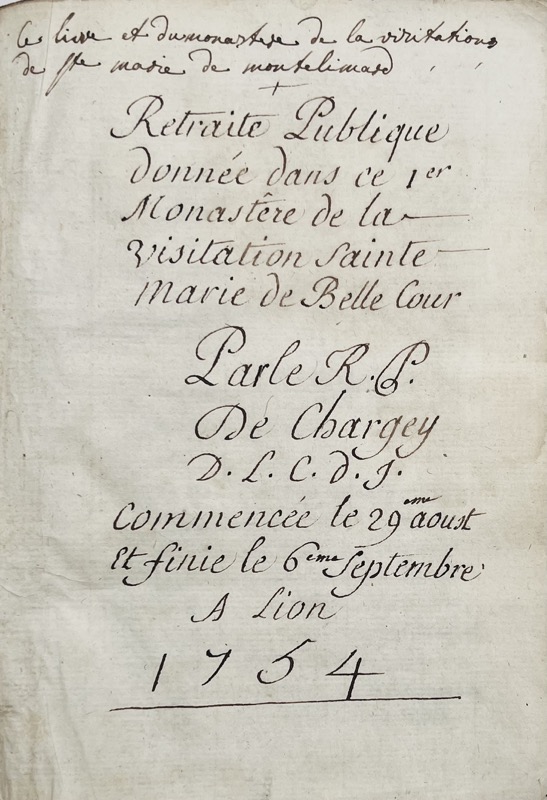 ce livre et dumonastere de la visitations
de ste marie de montelimard
Retraite Publique
donnée dans ce 1er
Monastêre de la
Visitation Sainte
Marie de Belle Cour
Parle R. P.
De Chargey
D. L. C. D. J.
Commencée le 29eme aoust
Et finie le 6eme Septembre
A Lion
1754